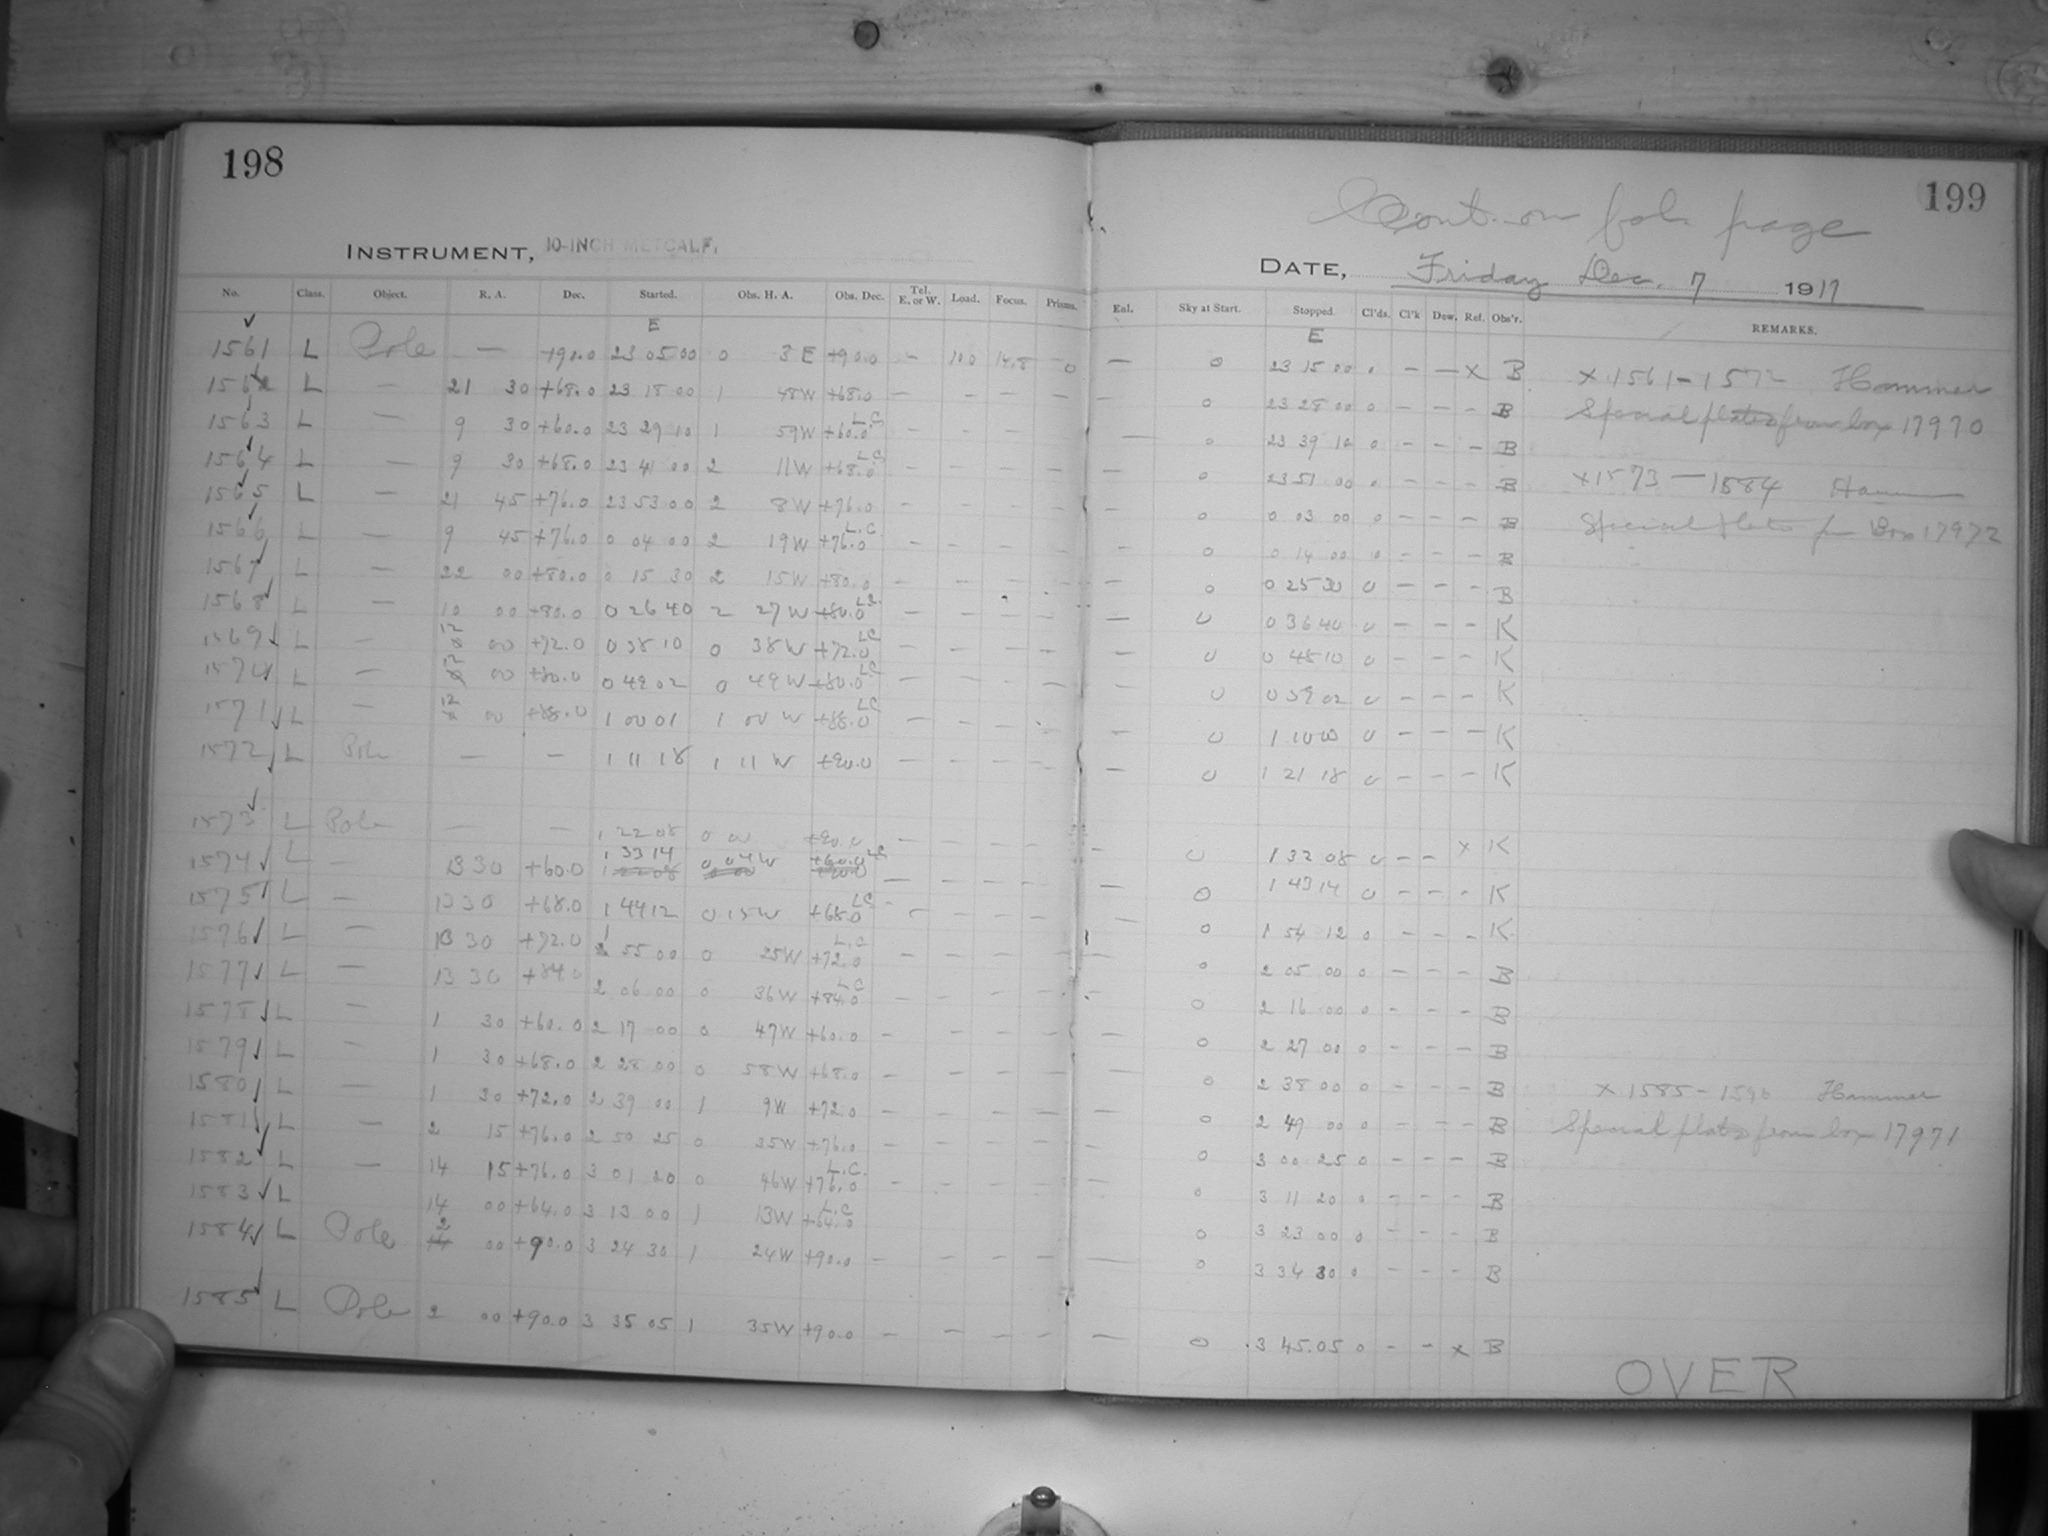 198
INSTRUMENT, 10-INCH METCALF.
No. Class. Object. R. A. Dec. Started. Obs. H. A. Obs. Dec. Tel. E. or W. Load. Focus. Prisms.
E
1561 L Pole — +90.0 23 05 00 0 3 E +90.0 - 100 14.8 0
1562 L — 21 30 +68.0 23 18 00 1 48W +68.0 - - - -
1563 L — 9 30 +60.0 23 29 10 1 59W +60.0 L.C - - - -
1564 L — 9 30 +68.0 23 41 00 2 11W +68.0 L.C - - - -
1565 L — 21 45 +76.0 23 53 00 2 8W +76.0 - - - -
1566 L — 9 45 +76.0 0 04 00 2 19W +76.0 L.C. - - - -
1567 L — 22 00 +80.0 0 15 30 2 15W +80.0 - - - -
1568 L — 10 00 +80.0 0 26 40 2 27W +80.0 LC - - - -
1569 L — 12 00 +72.0 0 38 10 0 38W +72.0 LC - - - -
1570 L — 12 00 +80.0 0 49 02 0 49W +80.0 LC - - - -
1571 L — 12 00 +88.0 1 00 01 1 00 W +88.0 LC - - - -
1572 L Pole — — 1 11 18 1 11 W +90.0 - - - -
1573 L Pole — — 1 22 08 0 00 +90.0 - - - -
1574 L — 13 30 +60.0 1 33 14 0 04W +60.0 LC - - - -
1575 L — 13 30 +68.0 1 44 12 0 15W +68.0 LC - - - -
1576 L — 13 30 +72.0 1 55 00 0 25W +72.0 L.C - - - -
1577 L — 13 30 +84.0 2 06 00 0 36W +84.0 L.C - - - -
1578 L — 1 30 +60.0 2 17 00 0 47W +60.0 - - - -
1579 L — 1 30 +68.0 2 28 00 0 58W +68.0 - - - -
1580 L — 1 30 +72.0 2 39 00 1 9W +72.0 - - - -
1581 L — 2 15 +76.0 2 50 25 0 35W +76.0 - - - -
1582 L — 14 15 +76.0 3 01 20 0 46W +76.0 L.C. - - - -
1583 L 14 00 +64.0 3 13 00 1 13W +64.0 L.C
1584 L Pole 2 00 +90.0 3 24 30 1 24W +90.0 - - - -
1585 L Pole 2 00 +90.0 3 35 05 1 35W +90.0 - - - -
199
Cont. on fol. page
DATE, Friday Dec. 7 1917
Enl. Sky at Start. Stopped. Cl'ds. Cl'k Dew. Ref. Obs'r. REMARKS.
E
— 0 23 15 00 0 - - X B X 1561-1572 Hammer
- 0 23 28 00 0 - - - B Special plates from box 17970
— 0 23 39 10 0 - - - B
- 0 23 51 00 0 - - - B X 1573-1584
- 0 0 03 00 0 - - - B Special plates Box 17972
- 0 0 14 00 0 - - - B
- 0 0 25 30 0 - - - B
- 0 0 36 40 0 - - - K
- 0 0 48 10 0 - - - K
- 0 0 59 02 0 - - - K
- 0 1 10 00 0 - - - K
- 0 1 21 18 0 - - - K
0 1 32 08 0 - - X K
- 0 1 43 14 0 - - - K
- 0 1 54 12 0 - - - K
- 0 2 05 00 0 - - - B
- 0 2 16 00 0 - - - B
- 0 2 27 00 0 - - - B
- 0 2 38 00 0 - - - B X 1585-1596 Hammer
- 0 2 49 00 0 - - - B Special plates from box 17971
- 0 3 00 25 0 - - - B
- 0 3 11 20 0 - - - B
0 3 23 00 0 - - - B
— 0 3 34 30 0 - - - B
— 0 3 45.05 0 - - X B
OVER